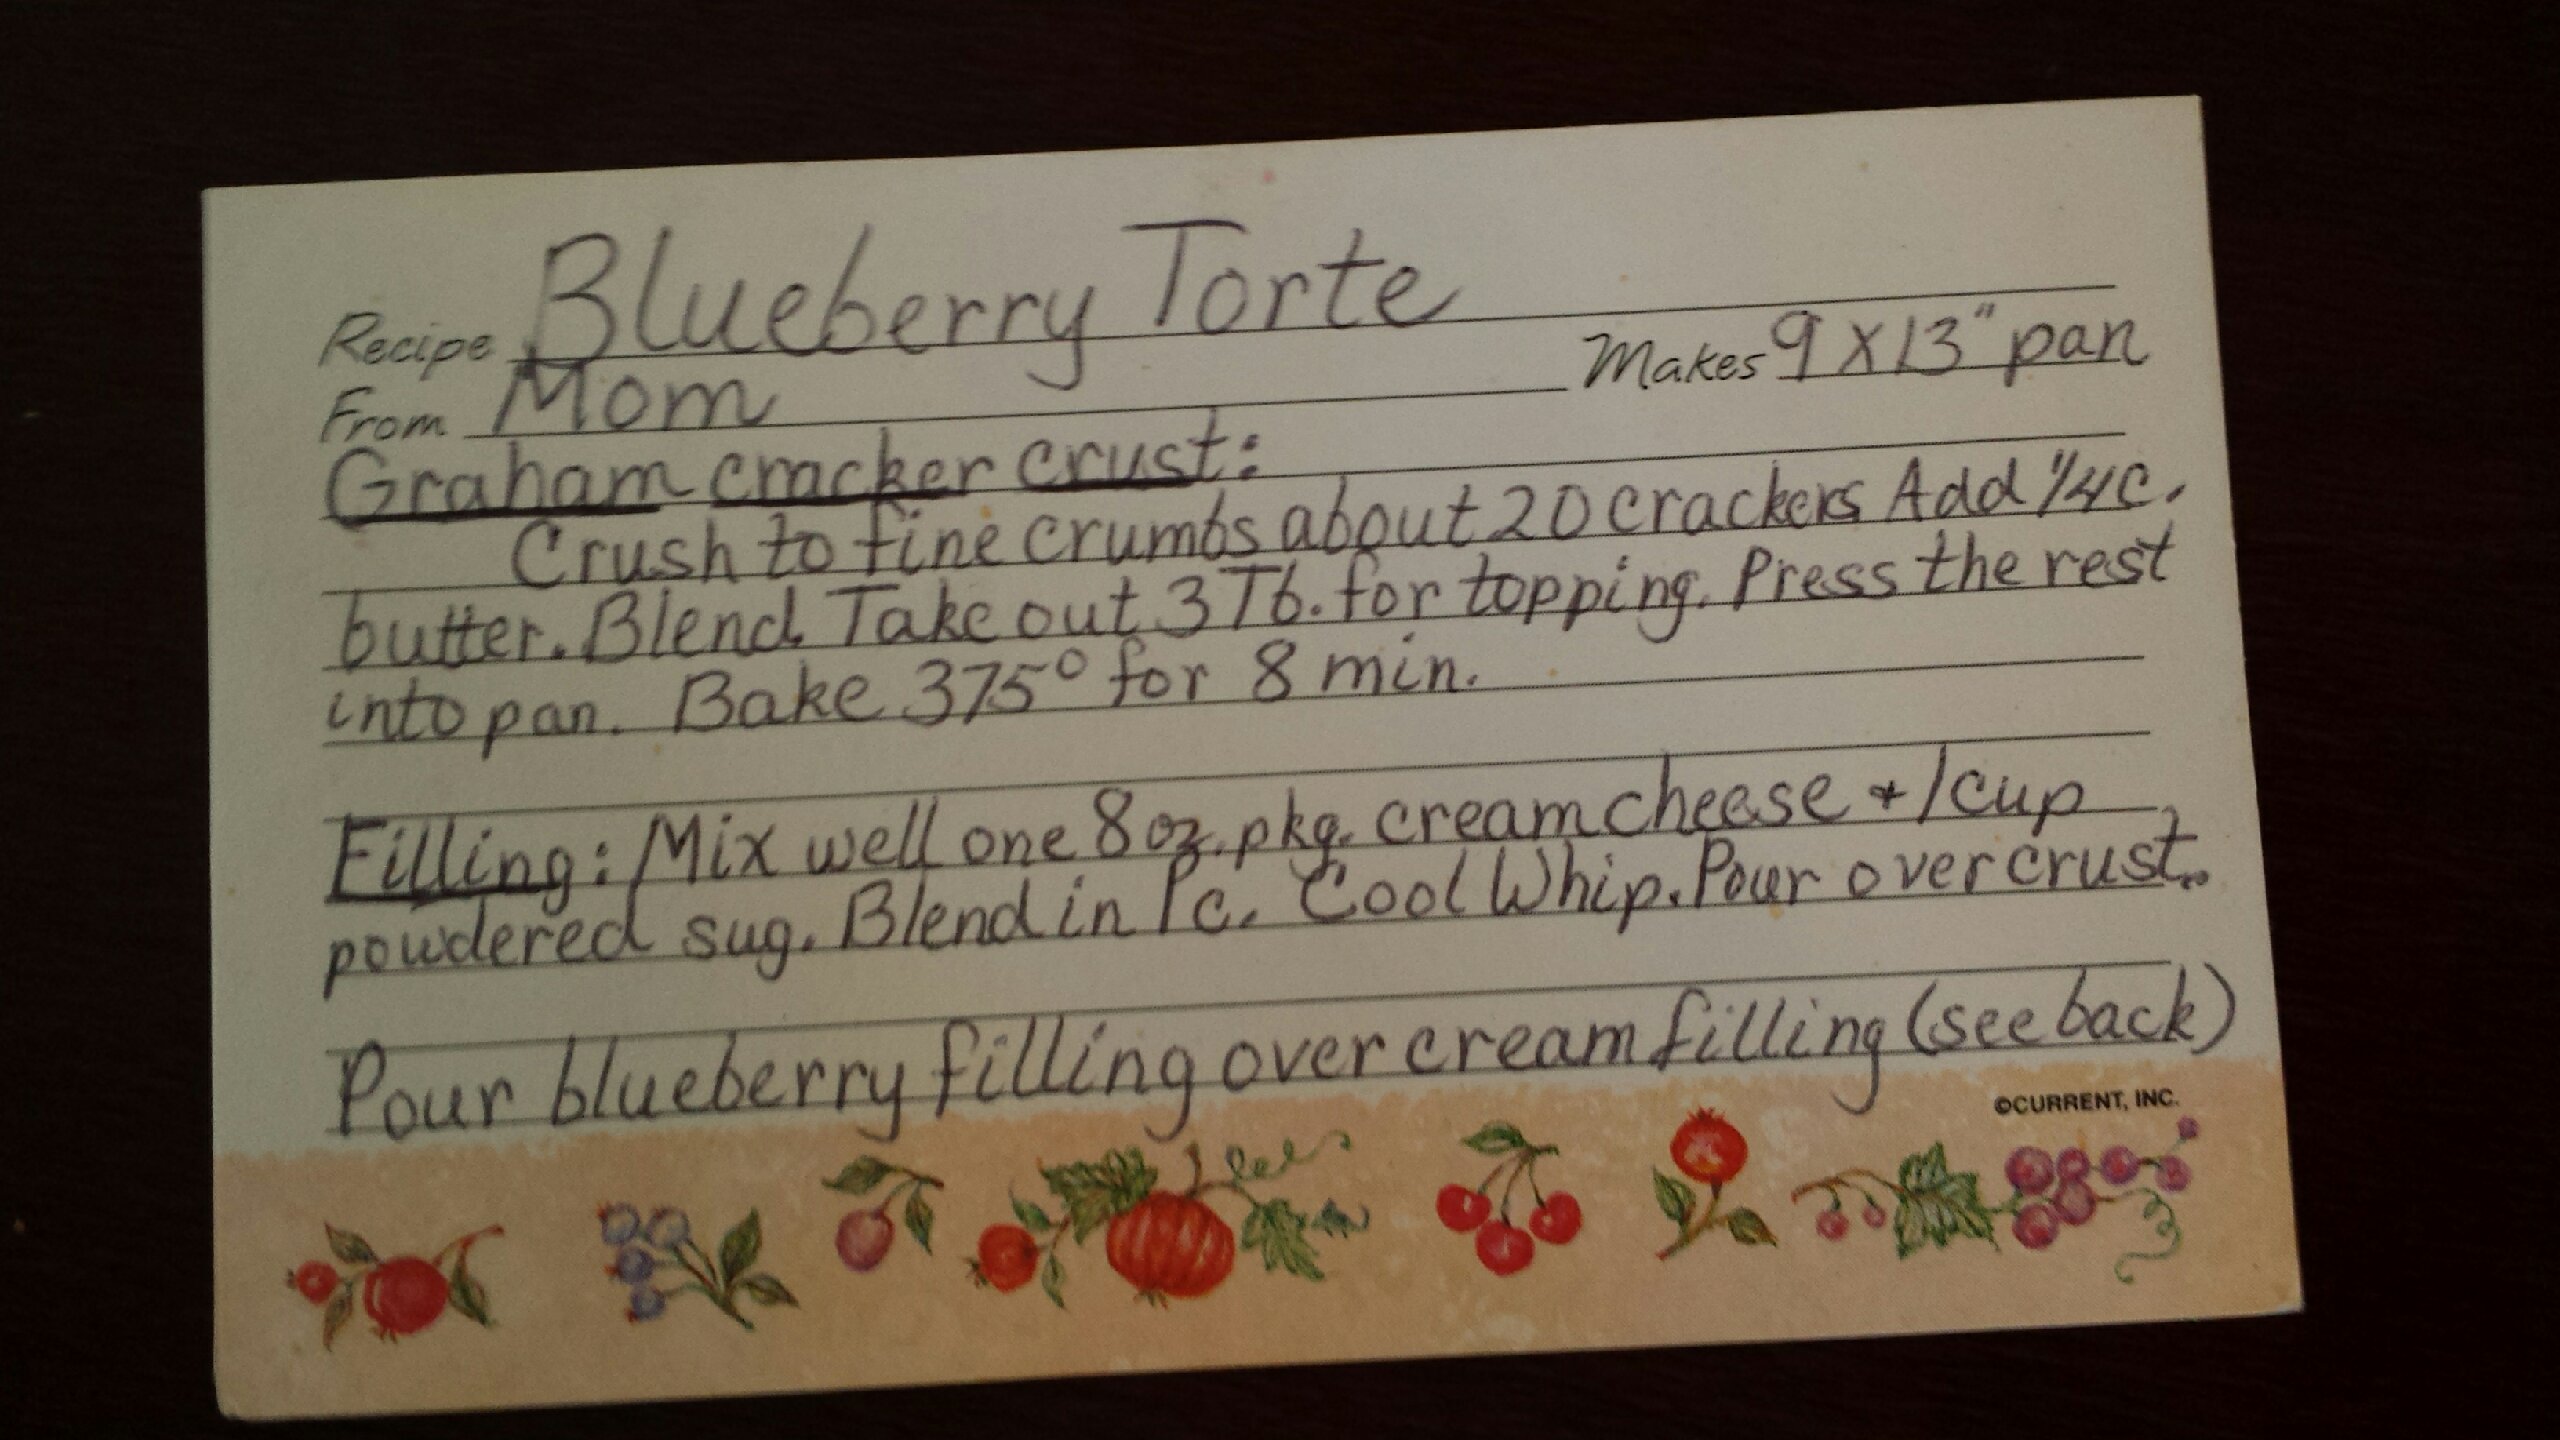 Recipe Blueberry Torte
From Mom Makes 9 X 13" pan
Graham cracker crust:
Crush to fine crumbs about 20 crackers Add 1/4 c.
butter. Blend. Take out 3 Tb. for topping. Press the rest
into pan. Bake 375° for 8 min.
Filling: Mix well one 8 oz. pkg. cream cheese + 1 cup
powdered sug. Blend in 1 c. Cool Whip. Pour over crust.
Pour blueberry filling over cream filling (see back)
©CURRENT, INC.